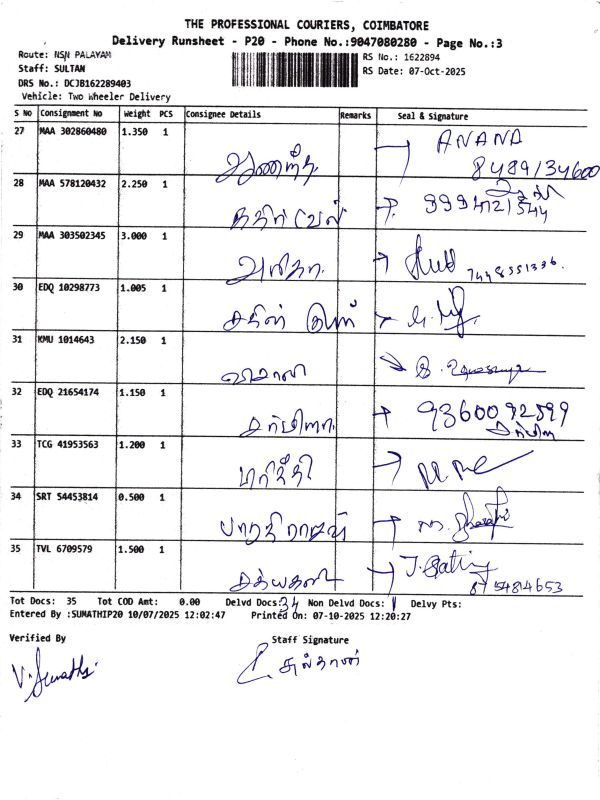 THE PROFESSIONAL COURIERS, COIMBATORE
Delivery Runsheet - P20 - Phone No.:9047080280 - Page No.:3
Route: NSN PALAYAM
RS No.: 1622894
Staff: SULTAN
RS Date: 07-Oct-2025
DRS No.: DCJB162289403
Vehicle: Two Wheeler Delivery
S No Consignment No Weight PCS Consignee Details Remarks Seal & Signature
27 MAA 302860480 1.350 1 ஆனந்த் ANAND
8489134600
28 MAA 578120432 2.250 1 கதிர் வேல்
29 MAA 303502345 3.000 1 7448551336.
30 EDQ 10298773 1.005 1
31 KMU 1014643 2.150 1 விமாலி
32 EDQ 21654174 1.150 1 சர்மிளா 9360092599
சர்மிளா
33 TCG 41953563 1.200 1
34 SRT 54453814 0.500 1 பாரதிராஜா
35 TVL 6709579 1.500 1 சத்யகலா
8754814653
Tot Docs: 35 Tot COD Amt: 0.00 Delvd Docs: 34 Non Delvd Docs: 1 Delvy Pts:
Entered By :SUMATHIP20 10/07/2025 12:02:47 Printed On: 07-10-2025 12:20:27
Verified By Staff Signature
V. Sumathi சுல்தான்